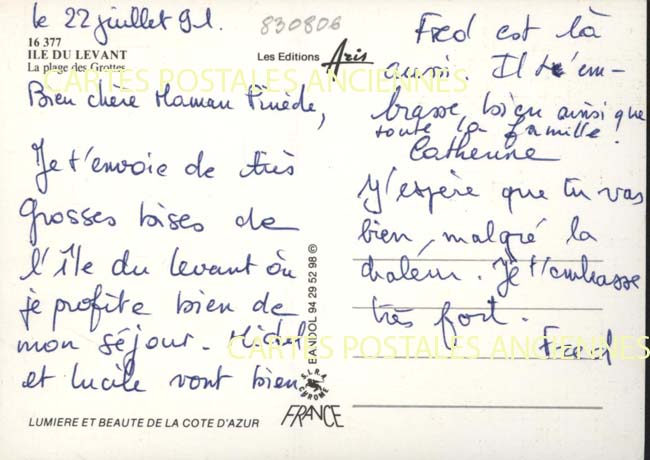 le 22 juillet 91.
830806
16 377
ILE DU LEVANT
La plage des Grottes
Les Editions Aris
CARTES POSTALES ANCIENNES
Bien chère Maman Pinède,
Je t'envoie de très
grosses bises de
l'île du levant où
je profite bien de
mon séjour. Michel
et Lucile vont bien
Fred est là
aussi. Il t'em-
brasse bien ainsi que
toute la famille!
Catherine
J'espère que tu vas
bien, malgré la
chaleur. Je t'embrasse
très fort.
Fred
CARTES POSTALES ANCIENNES
EANDOL 94 29 52 98 ©
S.I.R.A.
CHROME
FRANCE
LUMIERE ET BEAUTE DE LA COTE D'AZUR